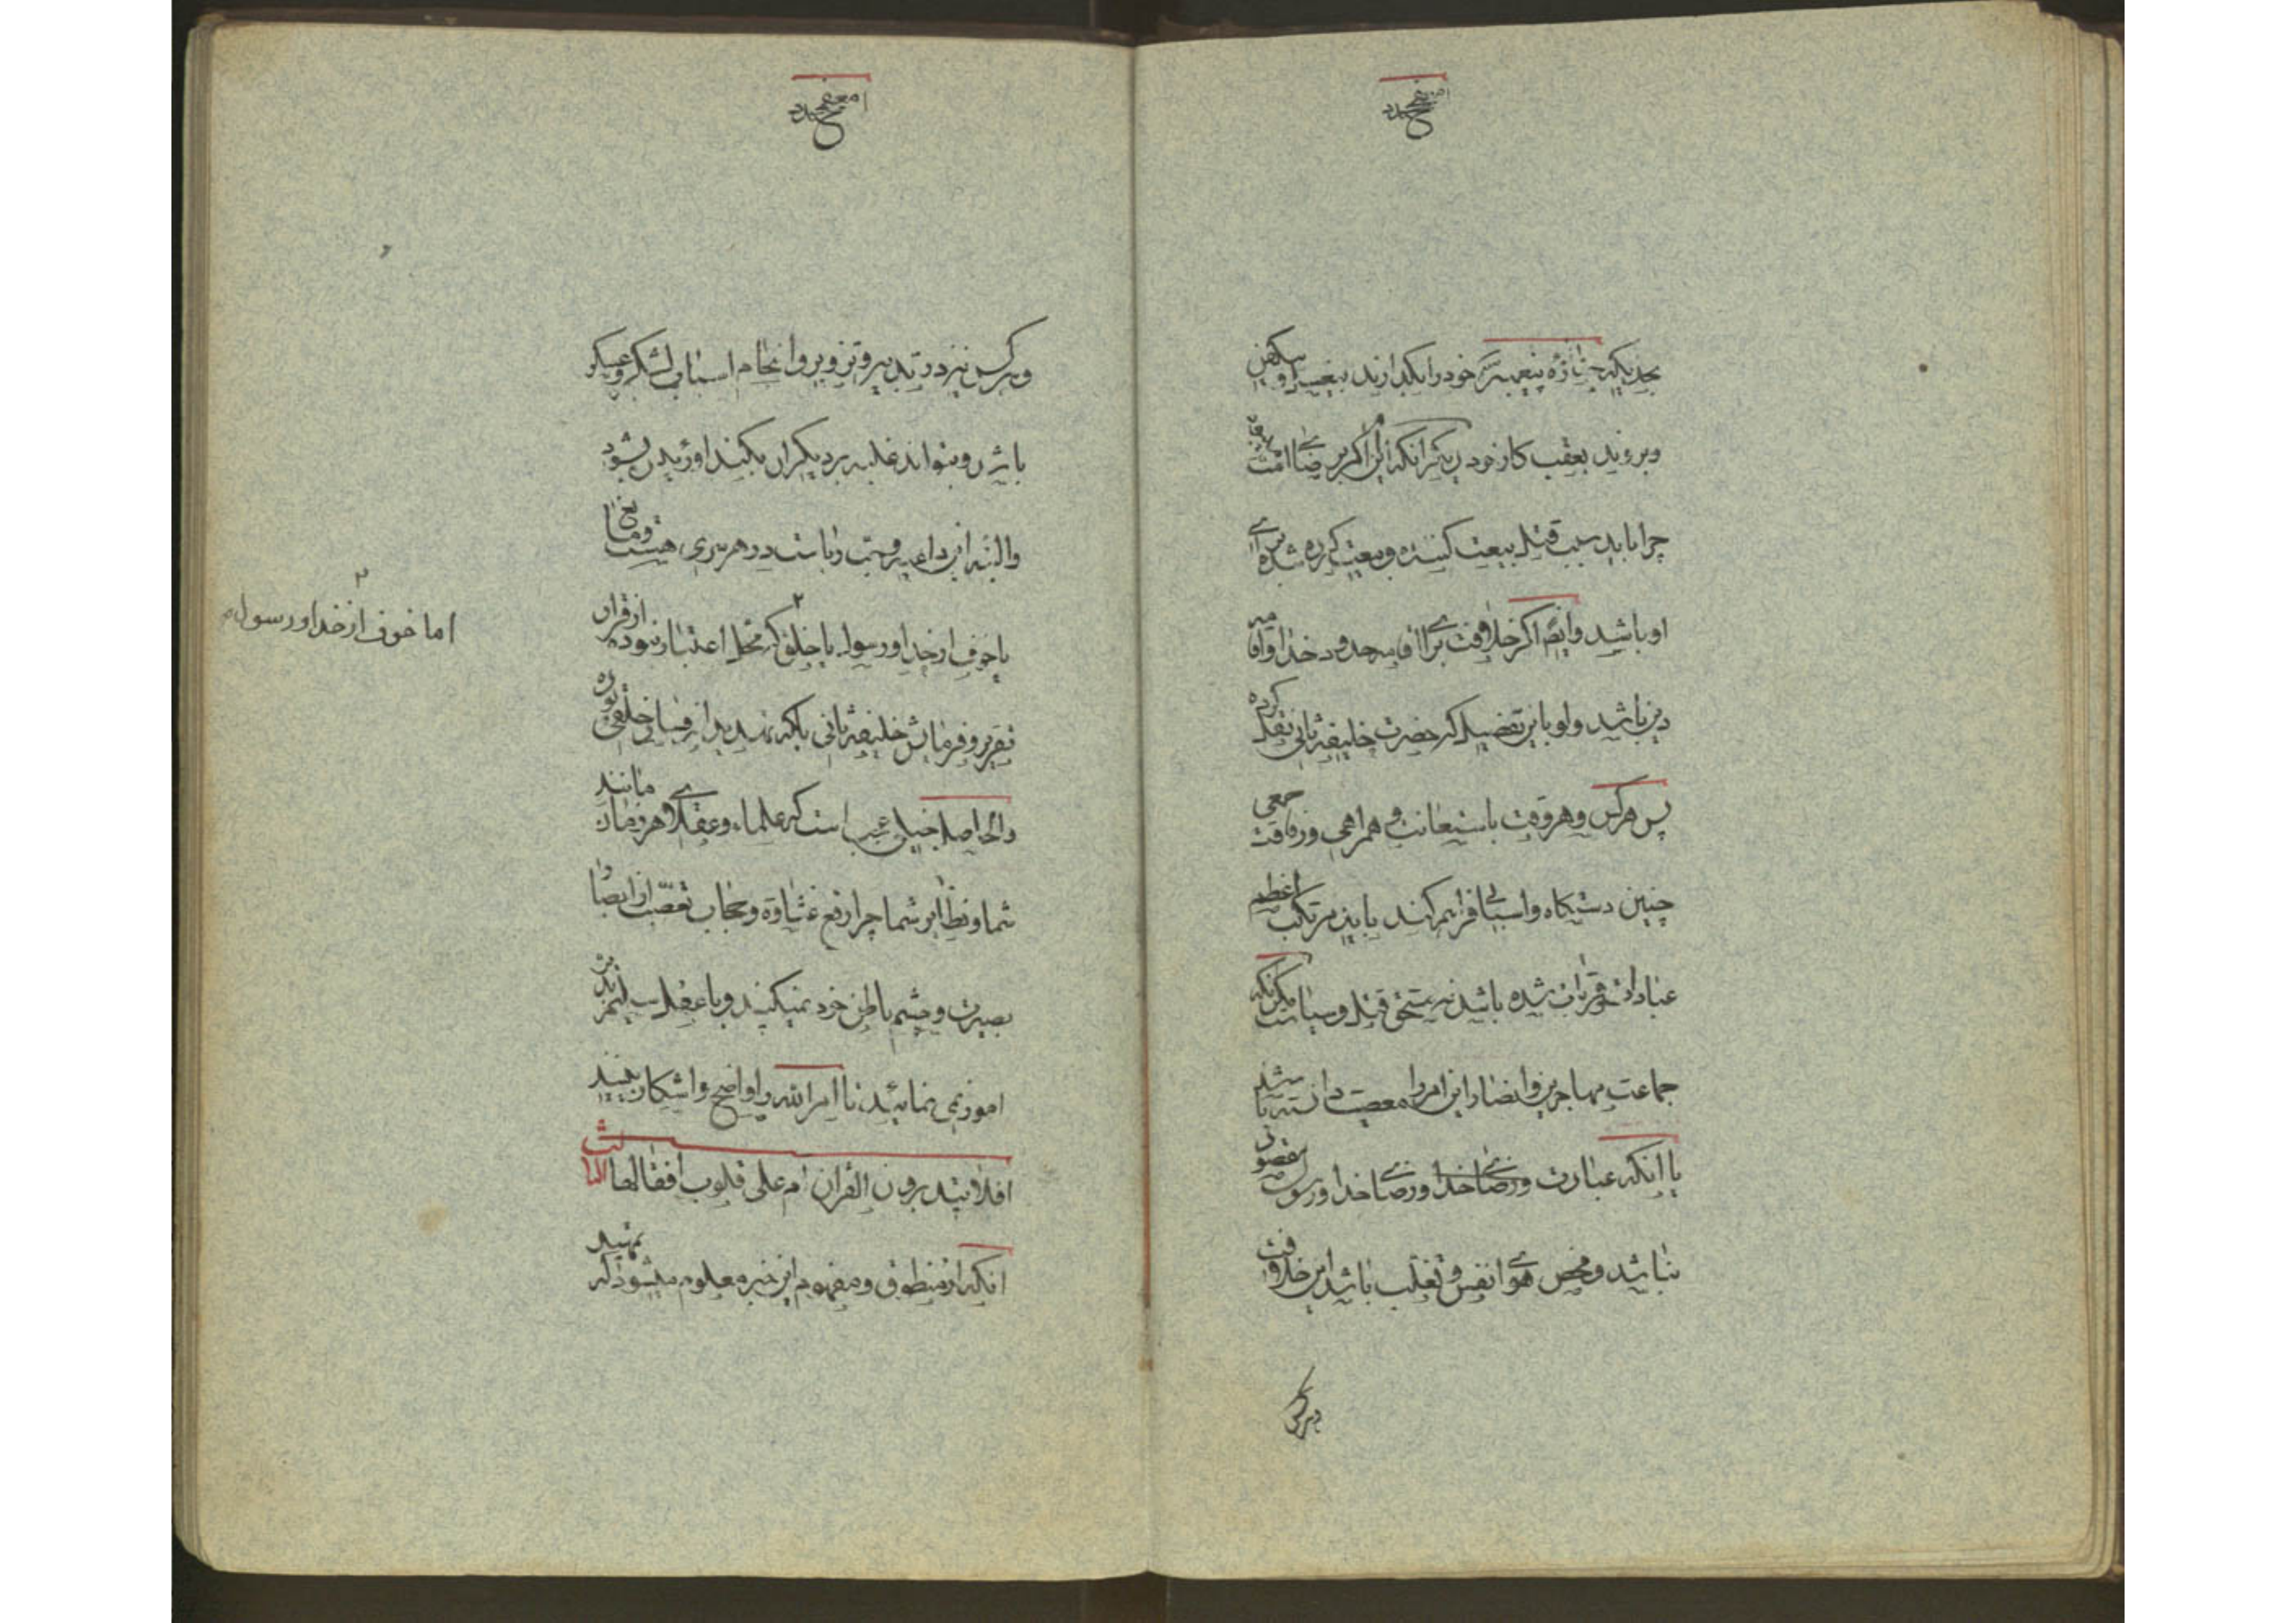 بحدیکه جنازه پیغمبر خود را بگذارند بیغسل و کفن
و بروند بعقب کار خود دیگر آنکه این اگر برضای امت
چرا باید سبب قتل بیعت کننده و بیعت کرده شده
او باشد و ایضا اگر خلافت برای اقامه حدود خدا و
دین باشد ولو باین تفضیل که حضرت خلیفه ثانی نقل کرده
پس هرکس و هر وقت باستعانت و همراهی و رفاقت جمعی
چنین دستگاه و اسبابی فراهم کند باید مرتکب اعظم
عبادات و قربات شده باشد نه مستحق قتل و سیاست مگر آنکه
جماعت مهاجرین و انصار این امر را معصیت دانسته باشند
با آنکه عبارت ورضای خدا ورضای خدا و رسول مقصود
نباشد و محض هوای نفس و تغلب باشد این خلافت
هرکس
و هرکس نیز در تدبیر و تزویر و انجام اسباب لشکر و عسکر
باشد و بتواند غلبه بر دیگران بکند او زید بشود
والبته این داعیه و حب ریاست در هر سری هست و مانع
یا خوف از خدا و رسول یا خلق که محل اعتبار نبوده از قرار
تقریر و فرمایش خلیفه ثانی بلکه تهدید از فساد خلقی بوده
والحاصل خیلی عجب است که علماء و عقلای هر زمان مانند
شما و نظایر شما چرا رفع غشاوة و حجاب تعصب از ابصار
بصیرت و چشم باطن خود نمیکنید و با عقل سلیم تدبر
امور نمی نمائید تا امر الله را واضح و اشکار ببینید
افلا یتدبرون القران ام علی قلوب اقفالها الثالث
انکه از منطوق و مفهوم این خبر معلوم میشود که
۲
اما خوف از خدا و رسول